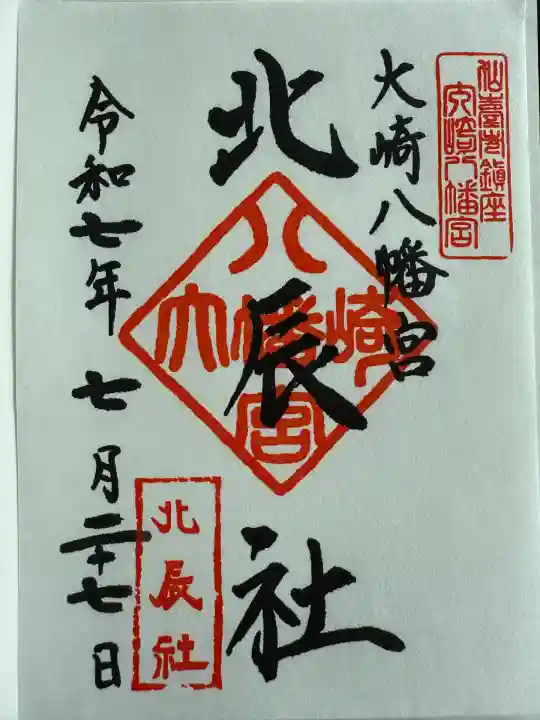 仙臺總鎮座
大崎八幡宮
大崎八幡宮
北辰社
八
大崎
幡
宮
北辰社
令和七年 七月二十七日